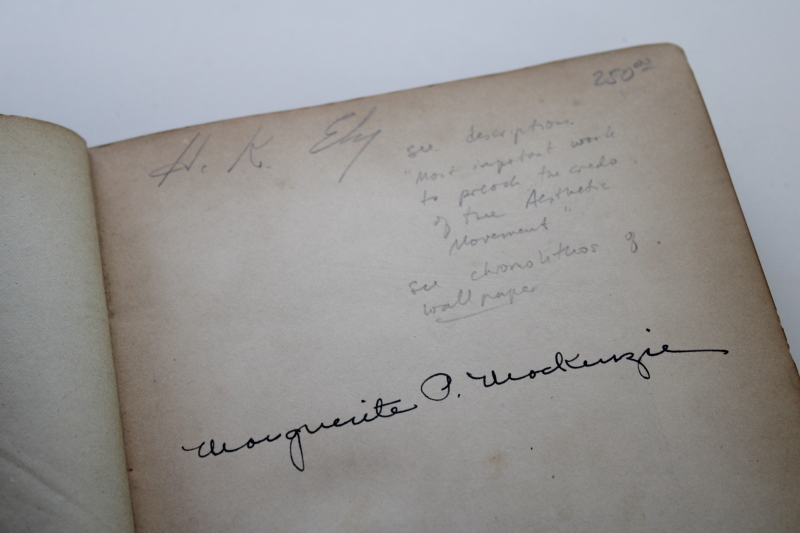 250.00
H. K. Ely
see description
"Most important work
to preach the credo
of the Aesthetic
Movement"
see chromolithos of
wallpaper
Marguerite P. Mackenzie